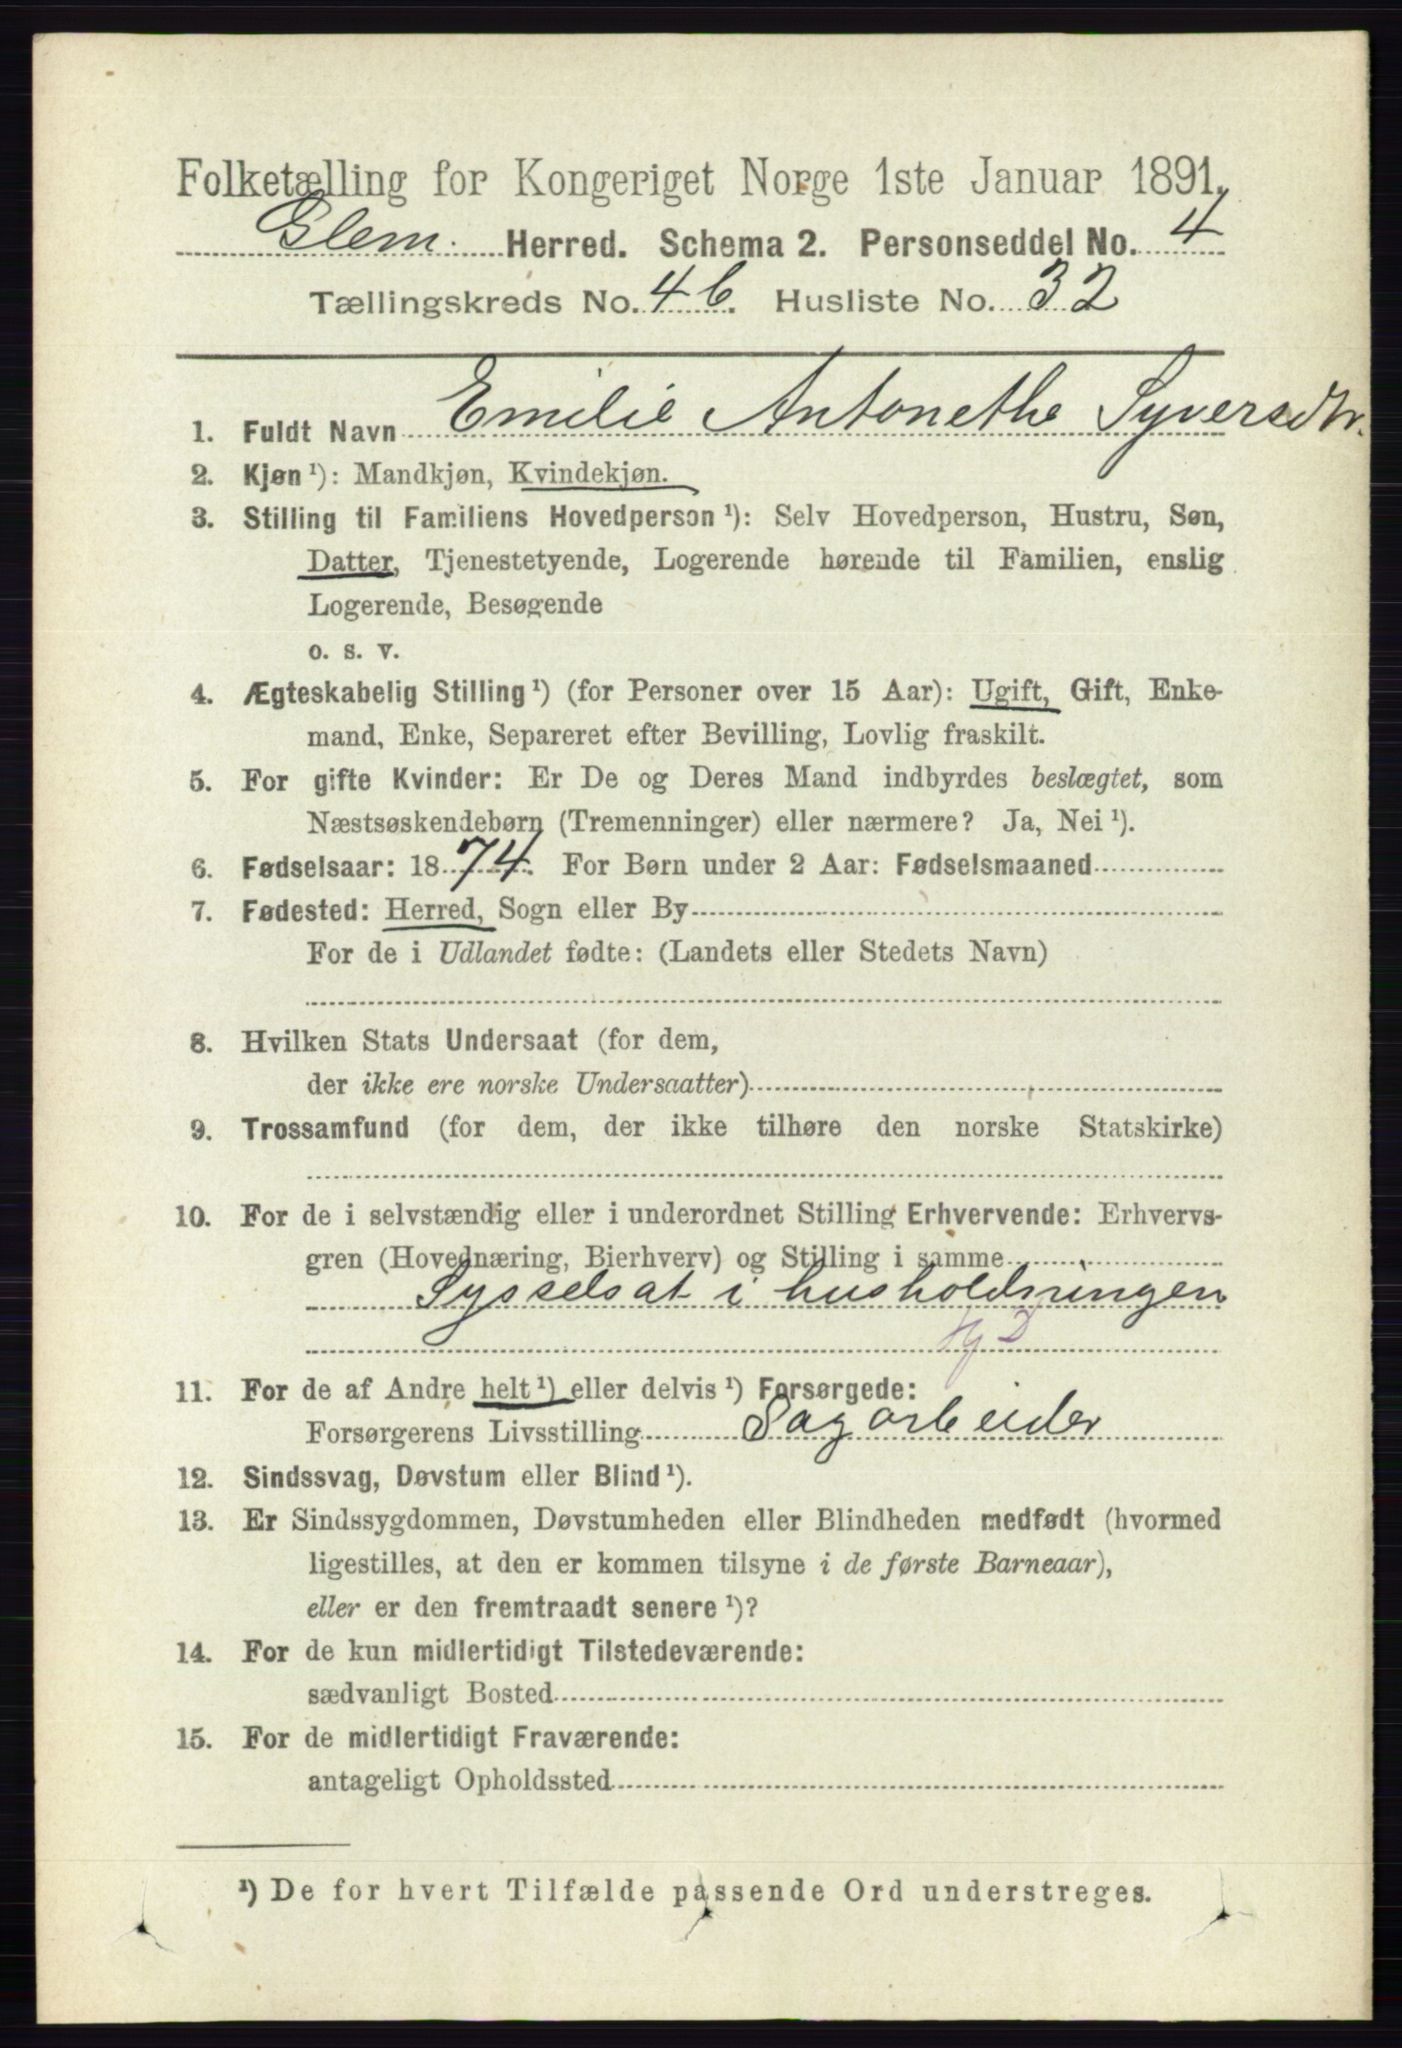 Folketælling for Kongeriget Norge 1ste Januar 1891.
Glem. Herred. Schema 2. Personseddel No. 4
Tællingskreds No. 46. Husliste No. 32
1. Fuldt Navn Emilie Antonethe Syversdtr.
2. Kjøn ¹): Mandkjøn, Kvindekjøn.
3. Stilling til Familiens Hovedperson ¹): Selv Hovedperson, Hustru, Søn,
Datter, Tjenestetyende, Logerende hørende til Familien, enslig
Logerende, Besøgende
o. s. v.
4. Ægteskabelig Stilling ¹) (for Personer over 15 Aar): Ugift, Gift, Enke-
mand, Enke, Separeret efter Bevilling, Lovlig fraskilt.
5. For gifte Kvinder: Er De og Deres Mand indbyrdes beslægtet, som
Næstsøskendebørn (Tremenninger) eller nærmere? Ja, Nei ¹).
6. Fødselsaar: 1874. For Børn under 2 Aar: Fødselsmaaned
7. Fødested: Herred, Sogn eller By
For de i Udlandet fødte: (Landets eller Stedets Navn)
8. Hvilken Stats Undersaat (for dem,
der ikke ere norske Undersaatter)
9. Trossamfund (for dem, der ikke tilhøre den norske Statskirke)
10. For de i selvstændig eller i underordnet Stilling Erhvervende: Erhvervs-
gren (Hovednæring, Bierhverv) og Stilling i samme
Sysselsat i husholdningen
11. For de af Andre helt ¹) eller delvis ¹) Forsørgede:
Forsørgerens Livsstilling Sagarbeider
12. Sindssvag, Døvstum eller Blind ¹).
13. Er Sindssygdommen, Døvstumheden eller Blindheden medfødt (hvormed
ligestilles, at den er kommen tilsyne i de første Barneaar),
eller er den fremtraadt senere ¹)?
14. For de kun midlertidigt Tilstedeværende:
sædvanligt Bosted
15. For de midlertidigt Fraværende:
antageligt Opholdssted
¹) De for hvert Tilfælde passende Ord understreges.